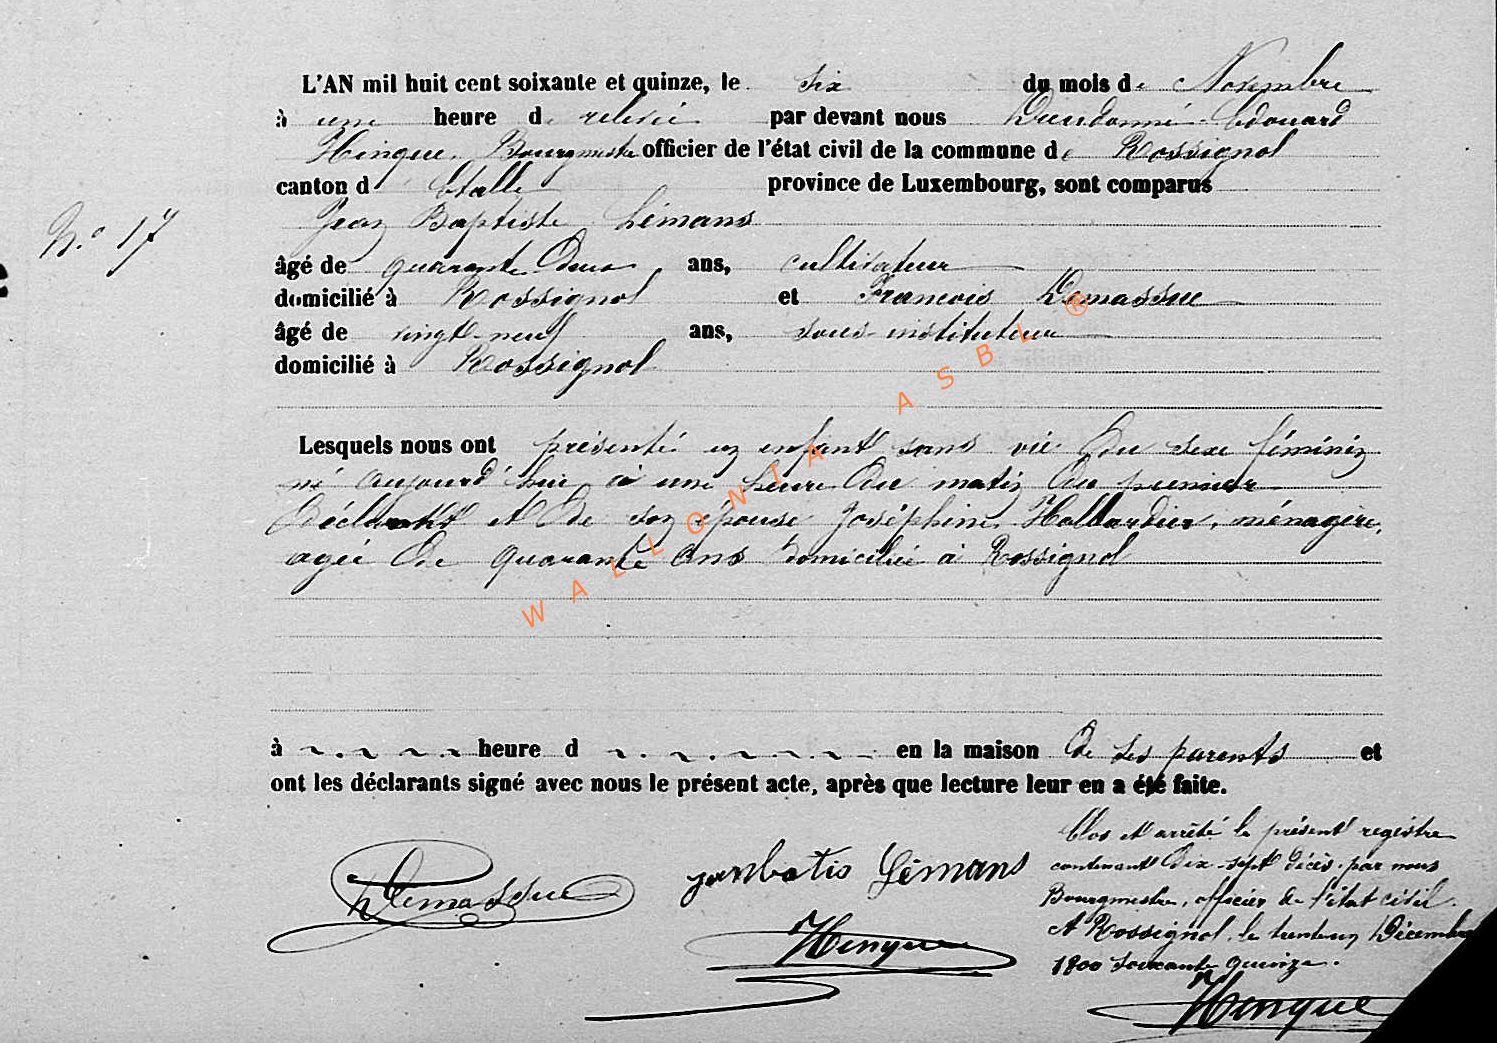 L'AN mil huit cent soixante et quinze, le six du mois de Novembre
à une heure de relevée par devant nous Dieudonné Edouard
Hinque, Bourgmestre officier de l'état civil de la commune de Rossignol
canton d Etalle province de Luxembourg, sont comparus
Jean Baptiste Lémans
N.° 17
âgé de quarante deux ans, cultivateur
domicilié à Rossignol et Francois Demassue
âgé de vingt-neuf ans, sous-instituteur
domicilié à Rossignol
Lesquels nous ont présenté un enfant sans vie du sexe féminin
né aujourd'hui à une heure du matin du premier
déclarant et de son épouse Joséphine Hallardier, ménagère,
agée de quarante ans domiciliée à Rossignol
à heure d en la maison de ses parents et
ont les déclarants signé avec nous le présent acte, après que lecture leur en a été faite.
Clos et arrêté le présent registre
contenant dix-sept décès par nous
Bourgmestre, officier de l'état civil.
A Rossignol, le trente un Décembre
1800 soixante quinze.
Demassue janbatis Lémans
Hinque
Hinque
WALLONIA ASBL ®